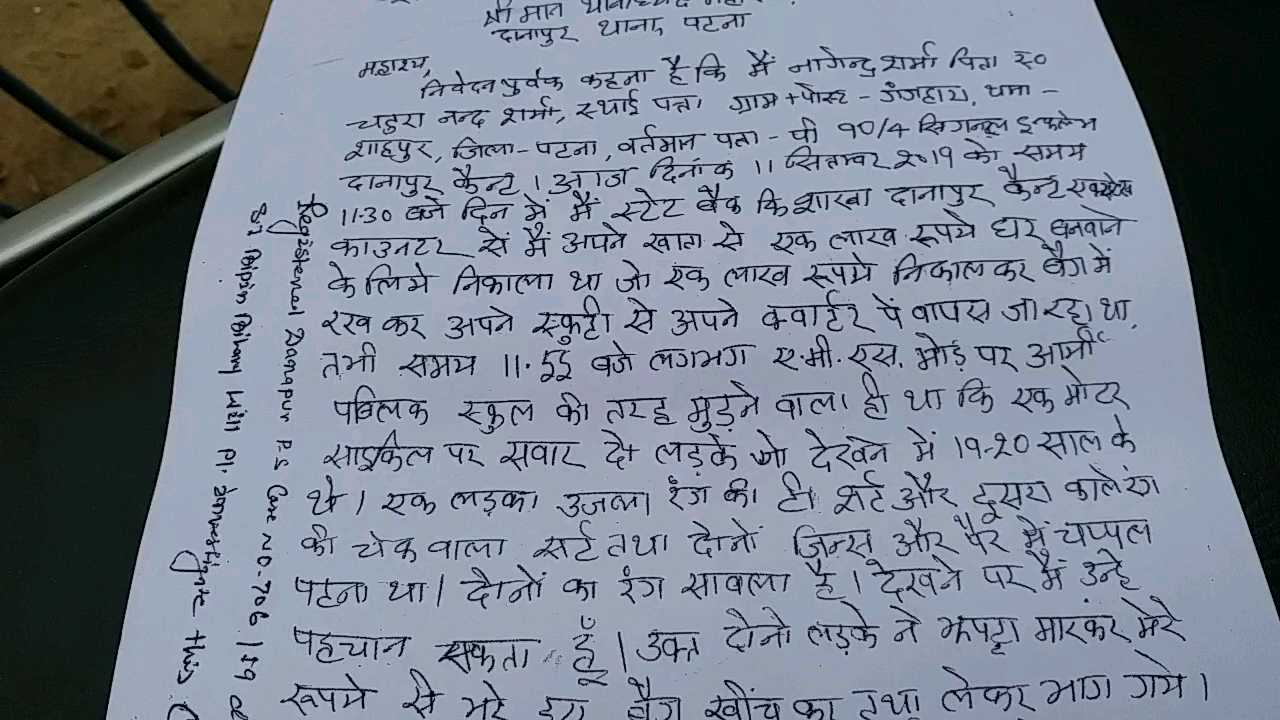 श्रीमान थानाध्यक्ष
दानापुर थाना, पटना
महाशय,
निवेदन पुर्वक कहना है कि मैं नागेन्द्र शर्मा पिता स्व०
चतुरा नन्द शर्मा, स्थाई पता ग्राम + पोस्ट - थाना -
शाहपुर, जिला - पटना, वर्तमान पता - पी 90/4 सिगनल इन्कलेभ
दानापुर कैन्ट। आज दिनांक 11 सितम्बर 2019 को समय
11.30 बजे दिन में मैं स्टेट बैंक कि शाखा दानापुर कैन्ट
काउनटर से मैं अपने खाता से एक लाख रूपये घर बनवाने
के लिये निकाला था जो एक लाख रूपये निकालकर बैग में
रख कर अपने स्कुटी से अपने क्वार्टर पे वापस जा रहा था,
तभी समय 11.55 बजे लगभग ए.मी.एस. मोड़ पर आर्मी
पब्लिक स्कुल की तरह मुड़ने वाला ही था कि एक मोटर
साइकिल पर सवार दो लड़के जो देखने में 19-20 साल के
थे। एक लड़का उजला रंग की टी शर्ट और दूसरा काले रंग
की चेक वाला सर्ट तथा दोनों जिन्स और पैर में चप्पल
पहना था। दोनों का रंग सावला है। देखने पर मैं उन्हे
पहचान सकता हूँ। उक्त दोनो लड़के ने झपट्टा मारकर मेरे
रूपये से भरे बैग खींच कर तथा लेकर भाग गये।
Registered Danapur P.S Case NO-706/19
SI Bipin Bihary Will Pl. Investigate this